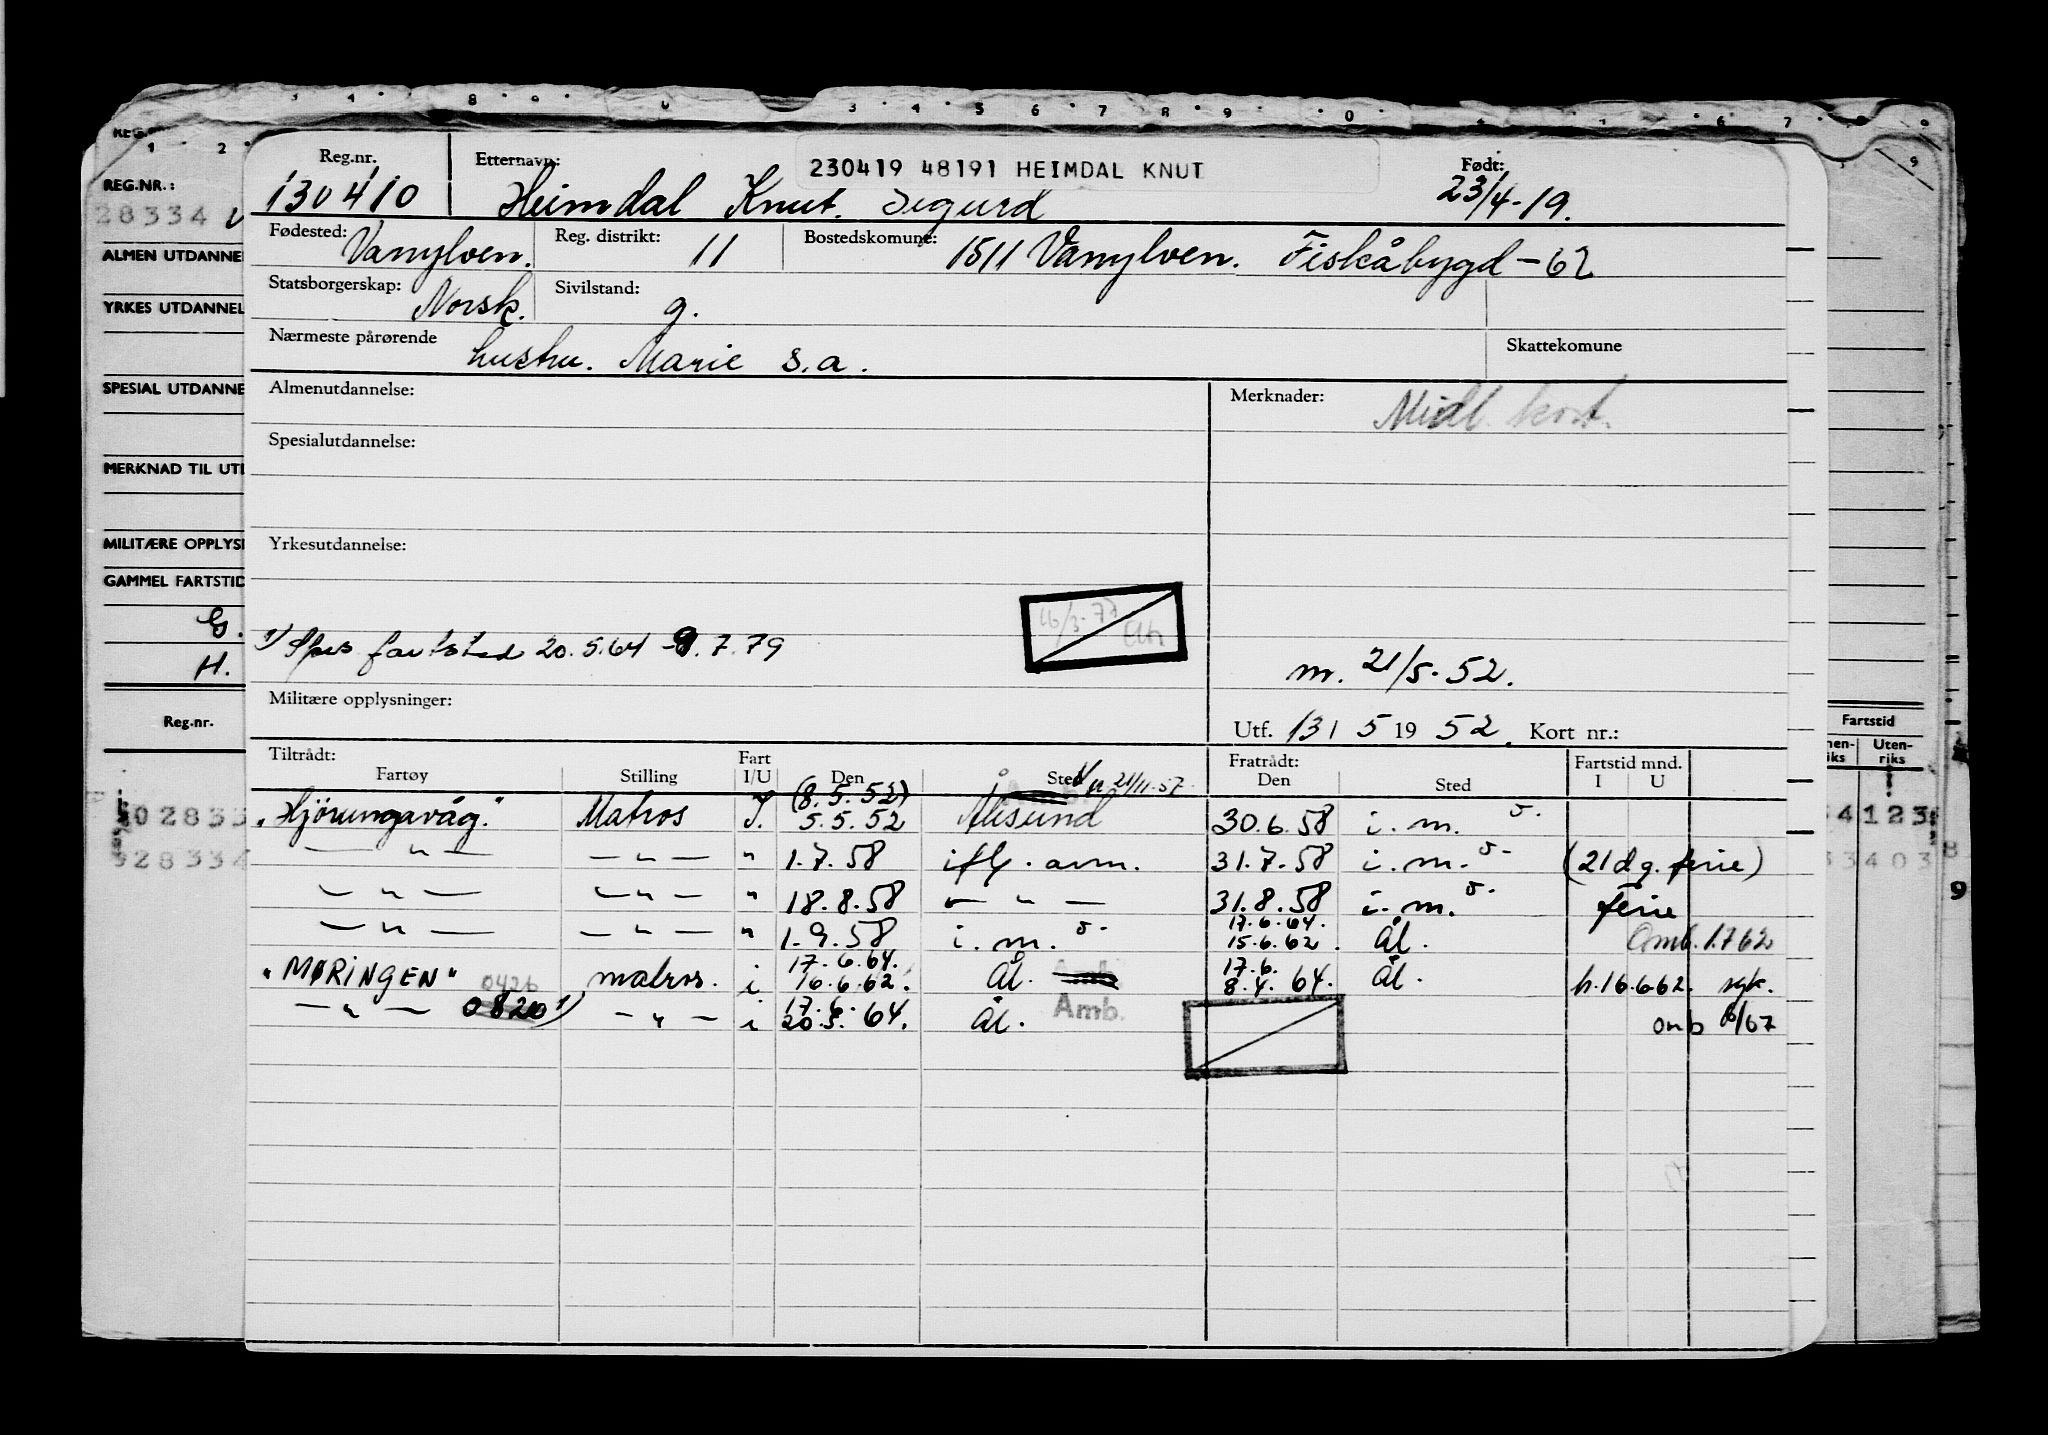 REG.NR.:
28334
ALMEN UTDANNE
YRKES UTDANNEL
SPESIAL UTDANNE
MERKNAD TIL UTD
MILITÆRE OPPLYSI
GAMMEL FARTSTID
G.
H.
Reg.nr.
02833
928334
Reg.nr. 130410
Etternavn: Heimdal Knut. Sigurd
230419 48191 HEIMDAL KNUT
Født: 23/4-19.
Fødested: Vanylven. Reg. distrikt: 11 Bostedskomune: 1511 Vanylven. Fiskåbygd-62
Statsborgerskap: Norsk. Sivilstand: g.
Nærmeste pårørende hustru. Marie s.a. Skattekomune
Almenutdannelse: Merknader: Midl. kort.
Spesialutdannelse:
Yrkesutdannelse:
16/3-77
1) fartstid 20.5.64 - 9.7.79
m. 21/5-52.
Militære opplysninger:
Utf. 13/ 5 19 52. Kort nr.:
Tiltrådt: Fart Fratrådt: Fartstid mnd.
Fartøy Stilling I/U Den Sted 21/11-57. Den Sted I U
(8.5.52)
"Hjörungavåg." Matros I. 5.5.52 Ålesund 30.6.58 i.m. o.
— " — — " — " 1.7.58 ifl. avm. 31.7.58 i.m. o- (21 dg. ferie)
— " — — " — " 18.8.58 — " — 31.8.58 i.m. o- ferie
17.6.64.
— " — — " — " 1.9.58 i.m. o- 15.6.62. Ål. Omb. 1.7 62
17.6.64. 17.6.
"MØRINGEN" 0426 matros. i 16.6.62. Ål. 8.4.64. Ål. h.16.6.62. sgk.
17.6.
— " — 0820 1) — " — i 20.5.64. Ål. Amb. omb 6/67
Fartstid
Uten-
riks
4123
3403